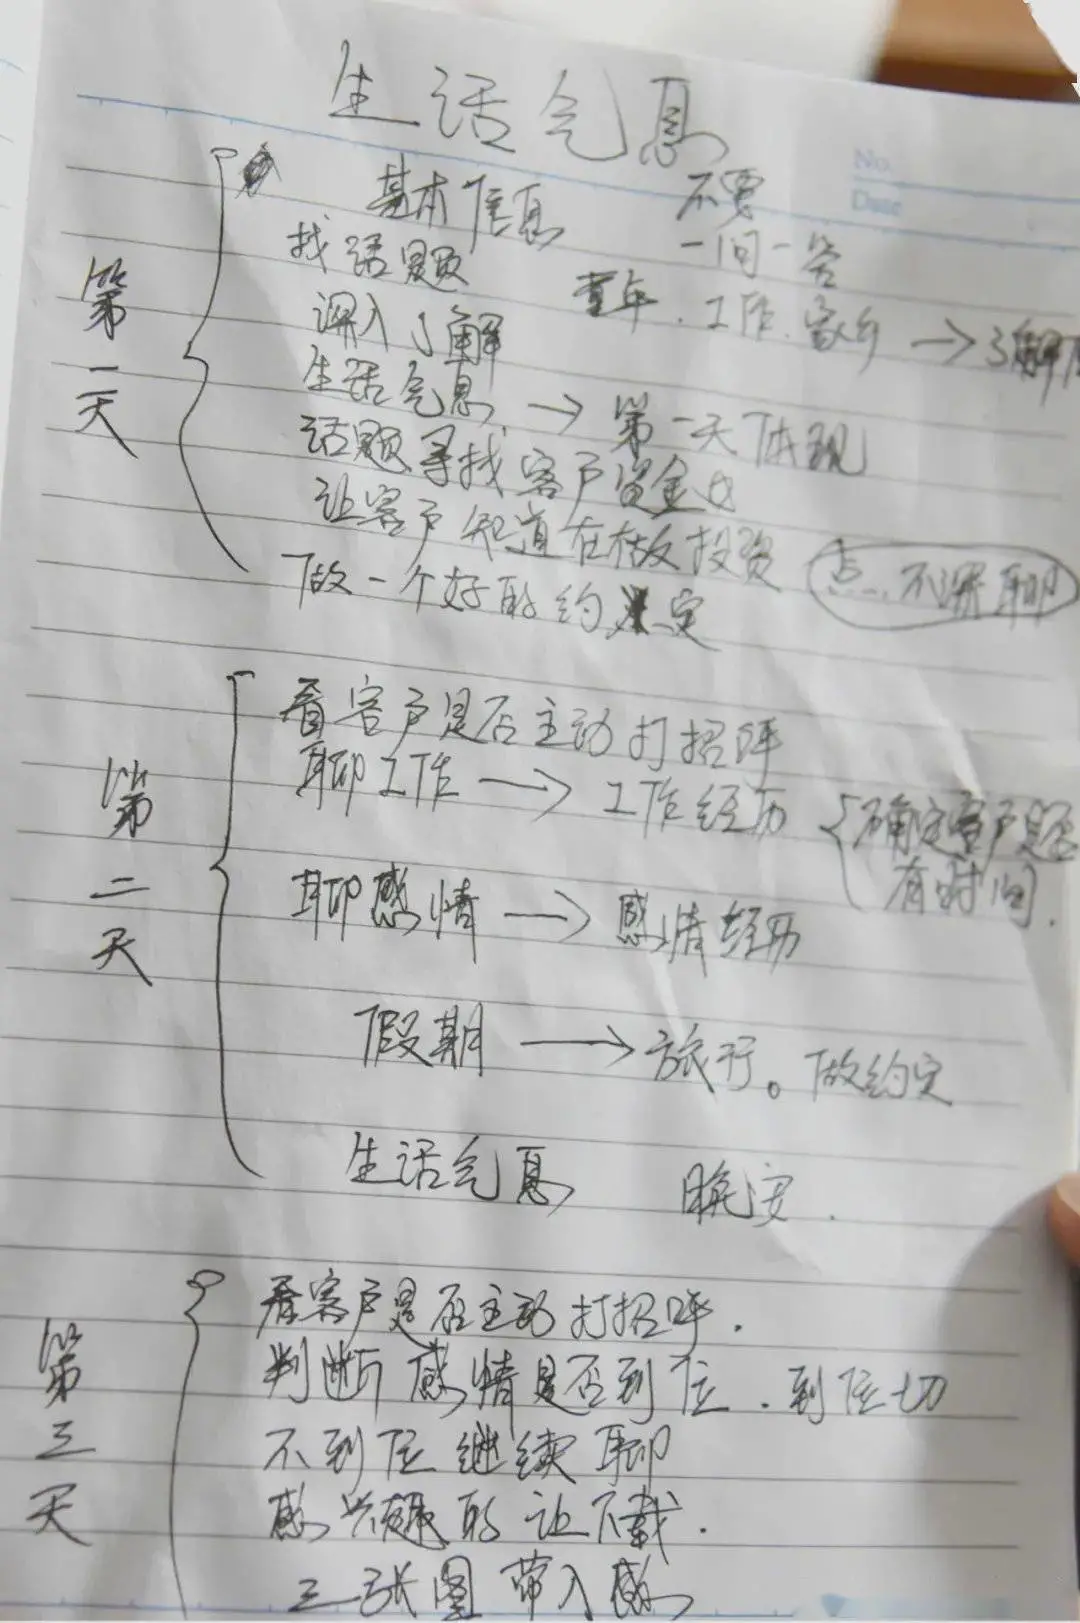 生活气息
No.
Date
第一天
基本信息 不要
找话题 一问一答
深入了解 童年、工作、家乡 → 了解
生活气息 → 第一天体现
话题寻找客户资金
让客户知道在做投资 点....不深聊
做一个好的约定
第二天
看客户是否主动打招呼
聊工作 → 工作经历 确定客户是否
有时间.
聊感情 → 感情经历
假期 → 旅行。做约定
生活气息 晚安.
第三天
看客户是否主动打招呼.
判断感情是否到位.到位切
不到位继续聊
感兴趣的让下载.
三张图带入感